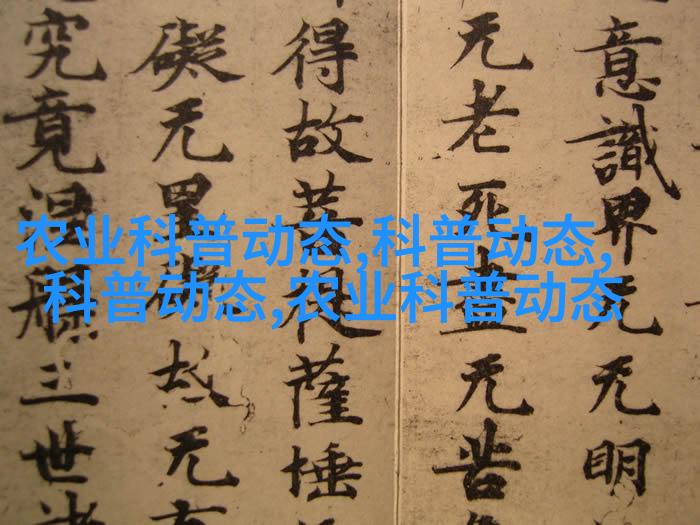 意識界无无明
无老死盡无苦
得故菩提薩埵
礙无罣礙故无
究竟涅槃三世諸
农业科普动态,科普动态,
科普动态,农业科普动态